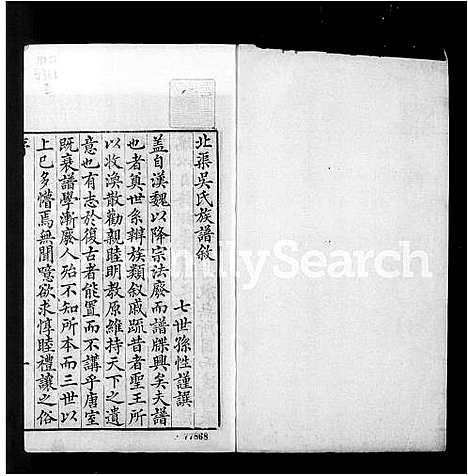 北渠吳氏族譜敘
七世孫性謹譔
蓋自漢魏以降宗法廢而譜牒興矣夫譜
也者奠世系辯族類叙戚疏昔者聖王所
以收渙散勸親睦明教原維持天下之遺
意也有志於復古者能置而不講乎唐室
既衰譜學漸廢人殆不知所本而三世以
上已多懵焉無聞噫欲求惇睦禮讓之俗
一
77868
FamilySearch